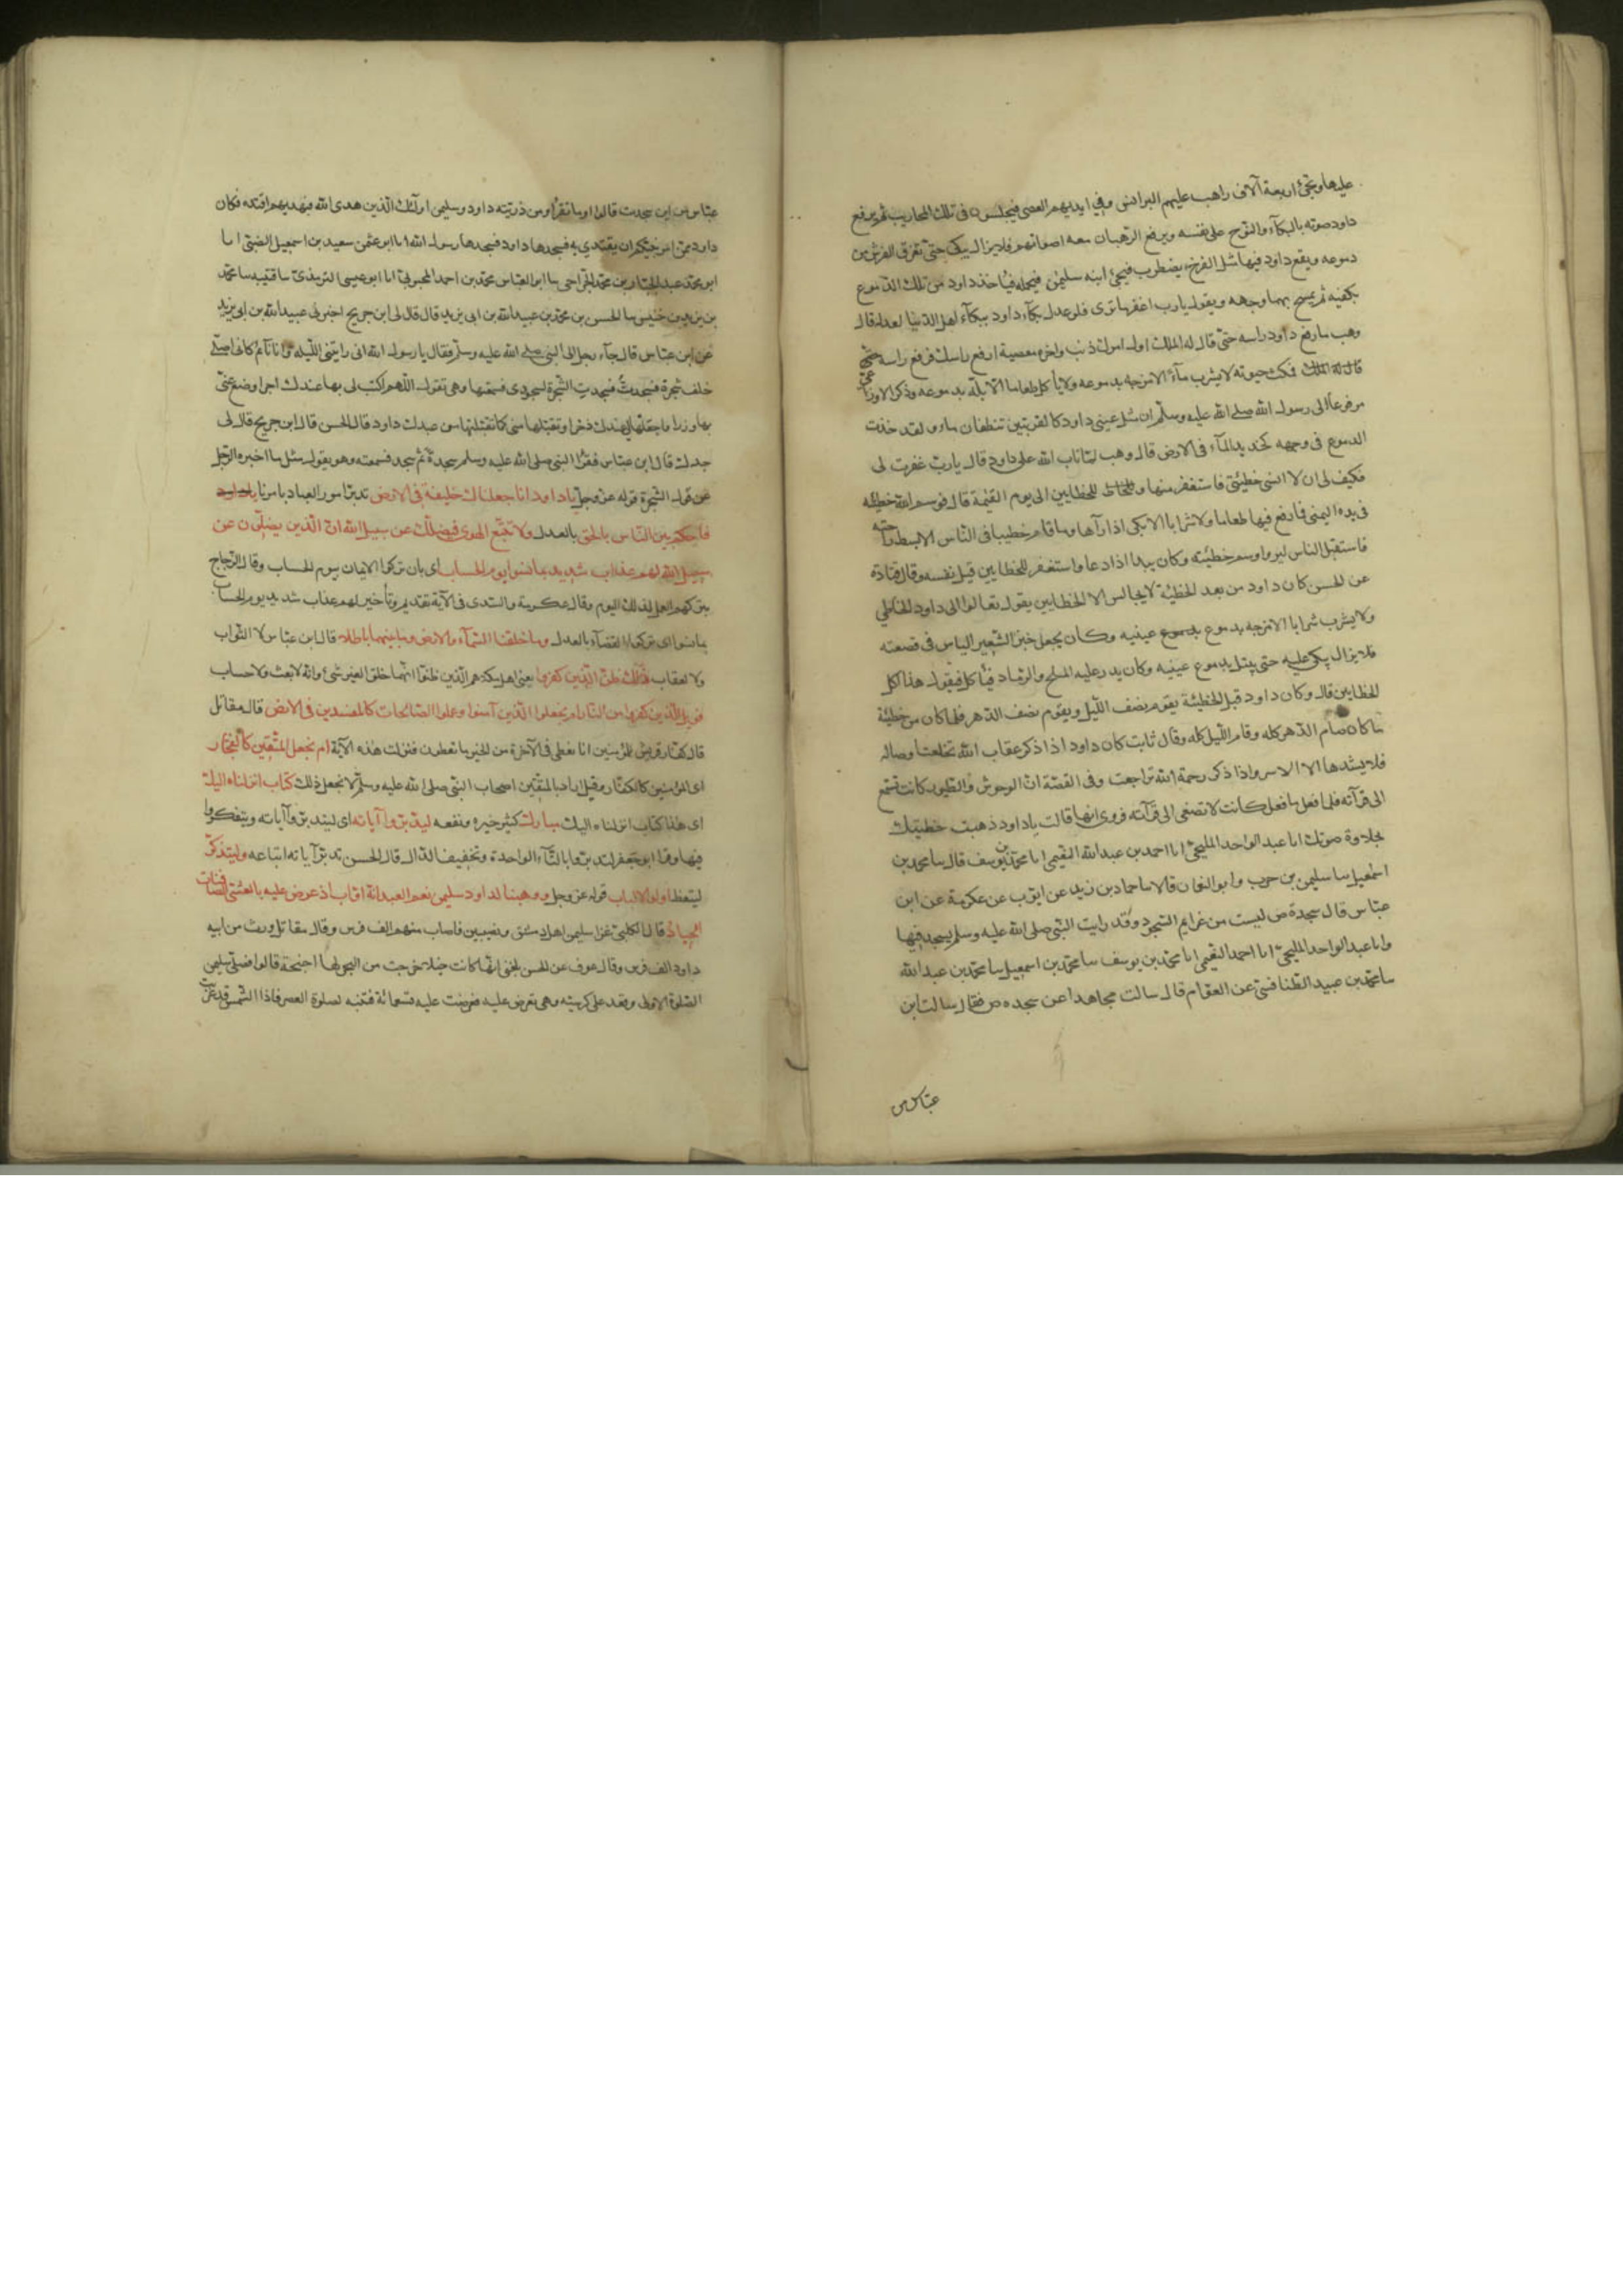 عليها ويجئ اربعة آلاف راهب عليهم البرانس وفي ايديهم العصى فيجلسون في تلك المحاريب ثم يرفع
داود صوته بالبكآء والنوح على نفسه ويرفع الرهبان معه اصواتهم فلا يزال يبكى حتى تغرق الفرش من
دموعه ويقع داود فيها مثل الفرخ يضطرب فيجئ ابنه سليمن فيحمله فيأخذ داود من تلك الدموع
بكفيه ثم يمسح بهما وجهه ويقول يارب اغفر ما ترى فلو عدل بكآء داود ببكآء اهل الدنيا لعدله قال
وهب ما رفع داود راسه حتى قال له الملك اول امرك ذنب واخره معصية ارفع راسك فرفع راسه
فمكث حيوته لا يشرب مآء الا مزجه بدموعه ولا يأكل طعاما الا بله بدموعه وذكر الاوزاعى
مرفوعا الى رسول الله صلى الله عليه وسلم ان مثل عينى داود كالقربتين تنطفان مآء ولقد خدت
الدموع فى وجهه كخديد المآء فى الارض قال وهب لما تاب الله على داود قال يارب غفرت لى
فكيف لى ان لا انسى خطيئتى فاستغفر منها وللخاطـ للخطايين الى يوم القيمة قال فوسم الله خطيئته
فى يده اليمنى فما رفع فيها طعاما ولا شرابا الا بكى اذا رآها وما قام خطيبا فى الناس الا بسط راحته
فاستقبل الناس ليروا وسم خطيئته وكان يبدا اذا دعا واستغفر للخطايين قبل نفسه وقال قتادة
عن الحسن كان داود من بعد الخطيئة لا يجالس الا الخطايين يقول تعالوا الى داود الخاطى
ولا يشرب شرابا الا مزجه بدموع عينيه وكان يجعل خبز الشعير اليابس فى قصعته
فلا يزال يبكى عليه حتى يبتل بدموع عينيه وكان يذر عليه الملح والرماد فيأكل فيقول هذا اكل
الخطايين قال وكان داود قبل الخطيئة يقوم نصف الليل ويصوم نصف الدهر فلما كان من خطيئته
ما كان صام الدهر كله وقام الليل كله وقال ثابت كان داود اذا ذكر عقاب الله تخلعت اوصاله
فلا يشدها الا الاسر واذا ذكر رحمة الله تراجعت وفى القصة ان الوحوش والطيور كانت تسمع
الى قرآته فلما فعل ما فعل كانت لا تصغى الى قرآته فروى انها قالت ياداود ذهبت خطيئتك
بحلاوة صوتك انا عبد الواحد المليحى انا احمد بن عبد الله النعيمى انا محمد بن يوسف قال سا محمد بن
اسمعيل سا سليمن بن حرب وابو النعمان قالا سا حماد بن زيد عن ايوب عن عكرمة عن ابن
عباس قال سجدة ص ليست من عزايم السجود وقد رايت النبى صلى الله عليه وسلم يسجد فيها
وانا عبد الواحد المليحى انا احمد النعيمى انا محمد بن يوسف سا محمد بن اسمعيل سا محمد بن عبد الله
سا محمد بن عبيد الطنافسى عن العوام قال سالت مجاهدا عن سجده ص فقال سالت ابن
عباس من
عباس من اين سجدت قال اوما تقرأ ومن ذريته داود وسليمن اولئك الذين هدى الله فبهديهم اقتده فكان
داود ممن امر نبيكم ان يقتدى به فسجدها داود فسجدها رسول الله انا ابو عثمن سعيد بن اسمعيل الضبى انا
ابو محمد عبد الجبار بن محمد الجراحى سا ابو العباس محمد بن احمد المحبوبى انا ابو عيسى الترمذى سا قتيبه سا محمد
بن يزيد بن خنيس سا الحسن بن محمد بن عبيد الله بن ابى يزيد قال قال لى ابن جريج اخبرنى عبيد الله بن ابى يزيد
عن ابن عباس قال جآء رجل الى النبى صلى الله عليه وسلم فقال يا رسول الله انى رايتنى الليلة وانا نآئم كانى اصلى
خلف شجرة فسجدت فسجدت الشجرة لسجودى فسمعتها وهى تقول اللهم اكتب لى بها عندك اجرا وضع عنى
بها وزرا واجعلها لى عندك ذخرا وتقبلها منى كما تقبلتها من عبدك داود قال الحسن قال ابن جريج قال لى
جدك قال ابن عباس فقرأ النبى صلى الله عليه وسلم سجدة ثم سجد فسمعته وهو يقول مثل ما اخبره الرجل
عن قول الشجرة قوله عز وجل ياداود انا جعلناك خليفة فى الارض تدبر امور العباد بامرنا
فاحكم بين الناس بالحق بالعدل ولا تتبع الهوى فيضلك عن سبيل الله ان الذين يضلون عن
سبيل الله لهم عذاب شديد بما نسوا يوم الحساب اى بان تركوا الايمان بيوم الحساب وقال الزجاج
بتركهم العمل لذلك اليوم وقال عكرمة والسدى فى الآية تقديم وتأخير لهم عذاب شديد يوم الحساب
بما نسوا اى تركوا القضآء بالعدل وما خلقنا السمآء والارض وما بينهما باطلا قال ابن عباس لا لثواب
ولا لعقاب ذلك ظن الذين كفروا يعنى اهل مكة هم الذين ظنوا انهما خلقا لغير شئ وانه لا بعث ولا حساب
فويل للذين كفروا من النار ام نجعل الذين آمنوا وعملوا الصالحات كالمفسدين فى الارض قال مقاتل
قال كفار قريش للمؤمنين انا نعطى فى الآخرة من الخير ما تعطون فنزلت هذه الآية ام نجعل المتقين كالفجار
اى المؤمنين كالكفار وقيل اراد بالمتقين اصحاب النبى صلى الله عليه وسلم لا نجعل ذلك كتاب انزلناه اليك
اى هذا كتاب انزلناه اليك مبارك كثير خيره ونفعه ليدبروا آياته اى ليتدبروا آياته ويتفكروا
فيها وقرا ابو جعفر لتدبروا بالتآء الواحدة وتخفيف الدال قال الحسن تدبر آياته اتباعه وليتذكر
ليتعظ اولوا الالباب قوله عز وجل ووهبنا لداود سليمن نعم العبد انه اواب اذ عرض عليه بالعشى الصافنات
الجياد قال الكلبى غزا سليمن اهل دمشق ونصيبين فاصاب منهم الف فرس وقال مقاتل ورث من ابيه
داود الف فرس وقال عوف عن الحسن بلغنى انها كانت خيلا خرجت من البحر لها اجنحة قالوا فصلى سليمن
الصلوة الاولى وقعد على كرسيه وهى تعرض عليه فعرضت عليه تسعمائة فتنبه لصلوة العصر فاذا الشمس قد غربت